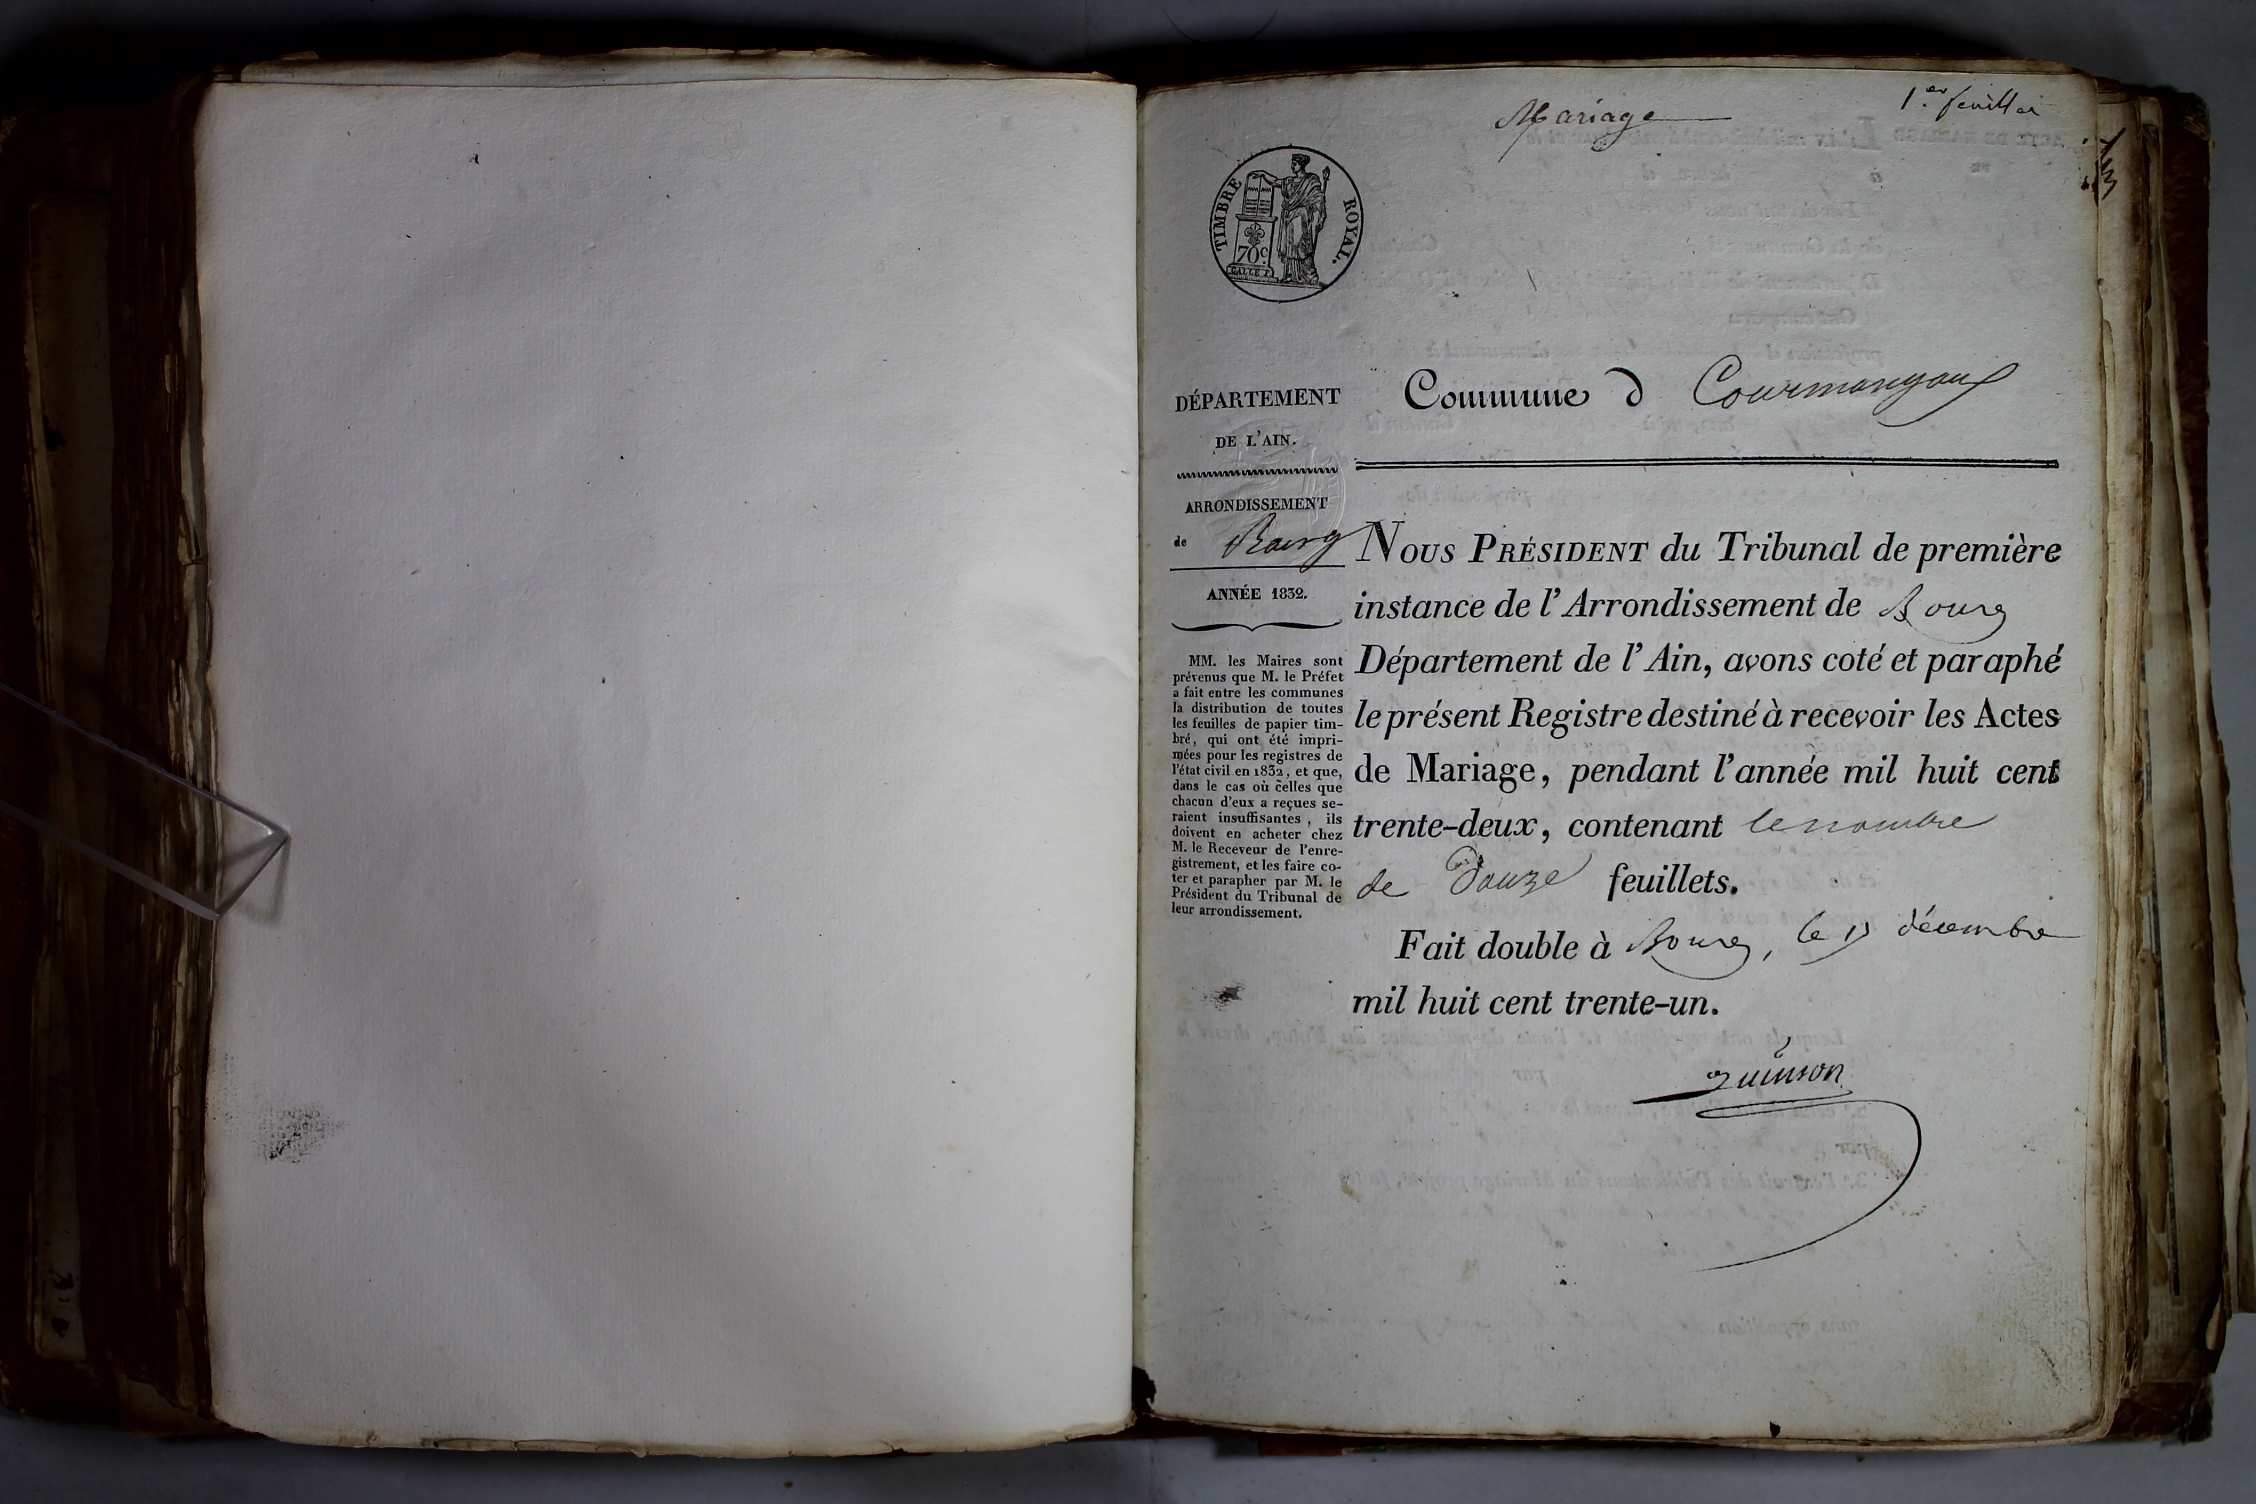 Mariage
1.er feuillet
TIMBRE ROYAL.
70c.
DÉPARTEMENT
DE L'AIN.
Commune d Courmangoux
ARRONDISSEMENT
de Bourg
ANNÉE 1832.
MM. les Maires sont
prévenus que M. le Préfet
a fait entre les communes
la distribution de toutes
les feuilles de papier tim-
bré, qui ont été impri-
mées pour les registres de
l'état civil en 1832, et que,
dans le cas où celles que
chacun d'eux a reçues se-
raient insuffisantes, ils
doivent en acheter chez
M. le Receveur de l'enre-
gistrement, et les faire co-
ter et parapher par M. le
Président du Tribunal de
leur arrondissement.
NOUS PRÉSIDENT du Tribunal de première
instance de l'Arrondissement de Bourg
Département de l'Ain, avons coté et paraphé
le présent Registre destiné à recevoir les Actes
de Mariage, pendant l'année mil huit cent
trente-deux, contenant le nombre
de Douze feuillets.
Fait double à Bourg, le décembre
mil huit cent trente-un.